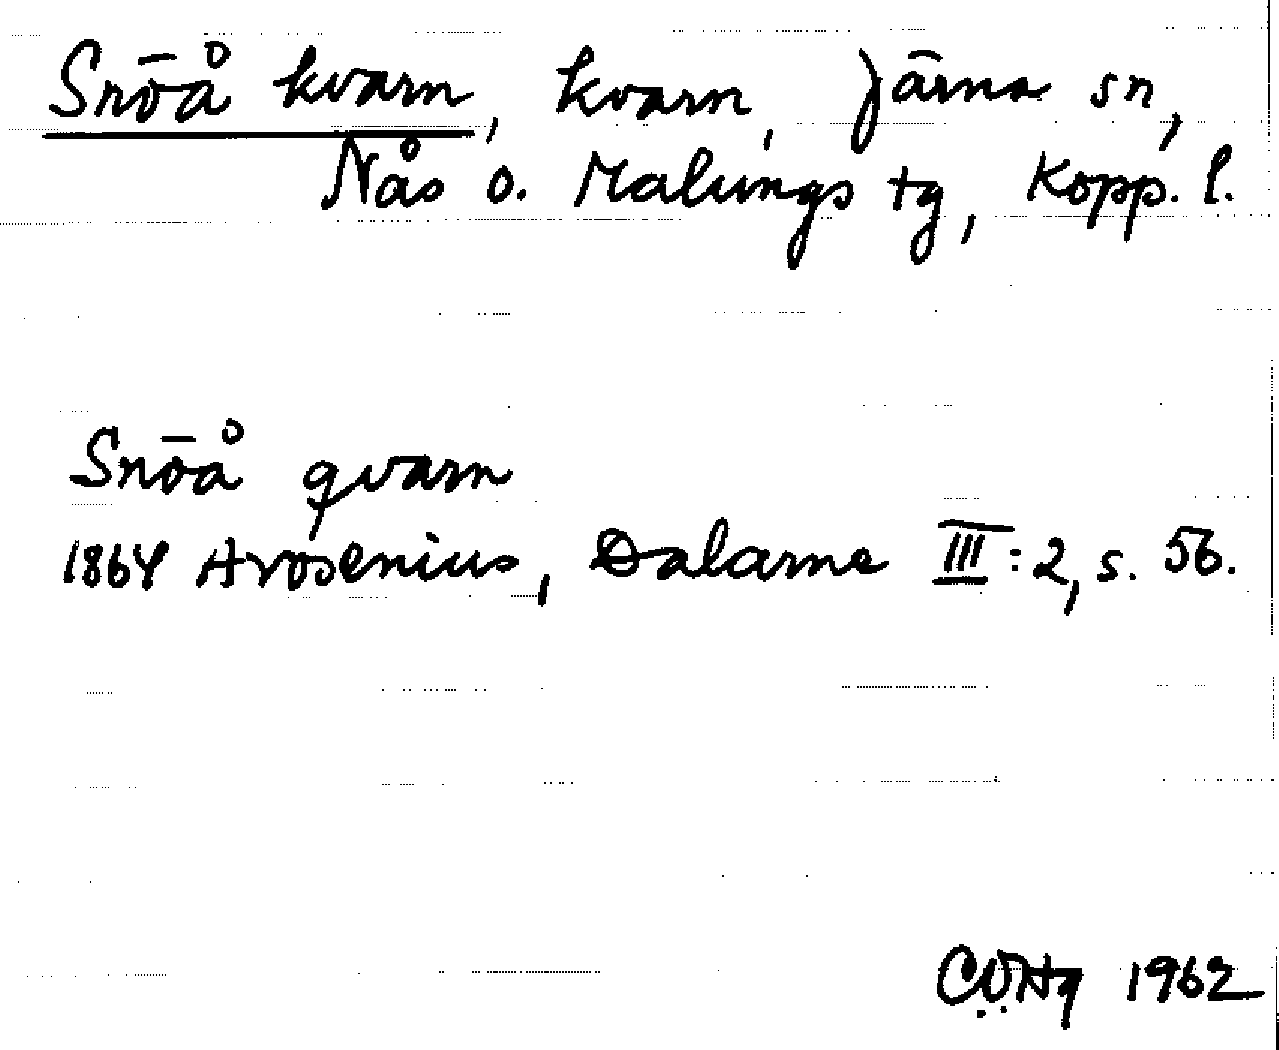 Snöå kvarn, kvarn, Järna sn,
Nås o. Malungs tg, Kopp. l.
Snöå qvarn
1864 Arosenius, Dalarne III:2, s. 56.
1962